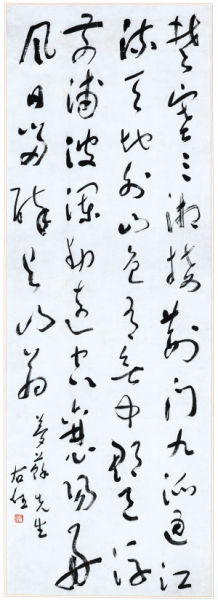 楚塞三湘接荊門九派通江
流天地外山色有無中郡邑浮
前浦波瀾動遠空襄陽好
風日留醉與山翁
先生
右任